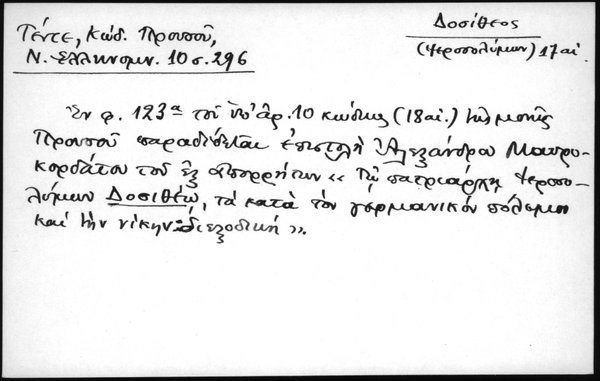 Γέντε, Κώδ. Προυσοῦ,
Ν. Ἑλληνομν. 10 σ. 296
Δοσίθεος
(Ἱεροσολύμων) 17 αἰ.
Ἐν φ. 123α τοῦ ὑπ' ἀρ. 10 κώδικος (18 αἰ.) τῆς μονῆς
Προυσοῦ παραδίδεται ἐπιστολὴ Ἀλεξάνδρου Μαυρο-
κορδάτου τοῦ ἐξ ἀπορρήτων « τῷ πατριάρχῃ Ἱεροσο-
λύμων Δοσιθέῳ, τὰ κατὰ τὸν γερμανικὸν πόλεμον
καὶ τὴν νίκην: διεξοδική ».